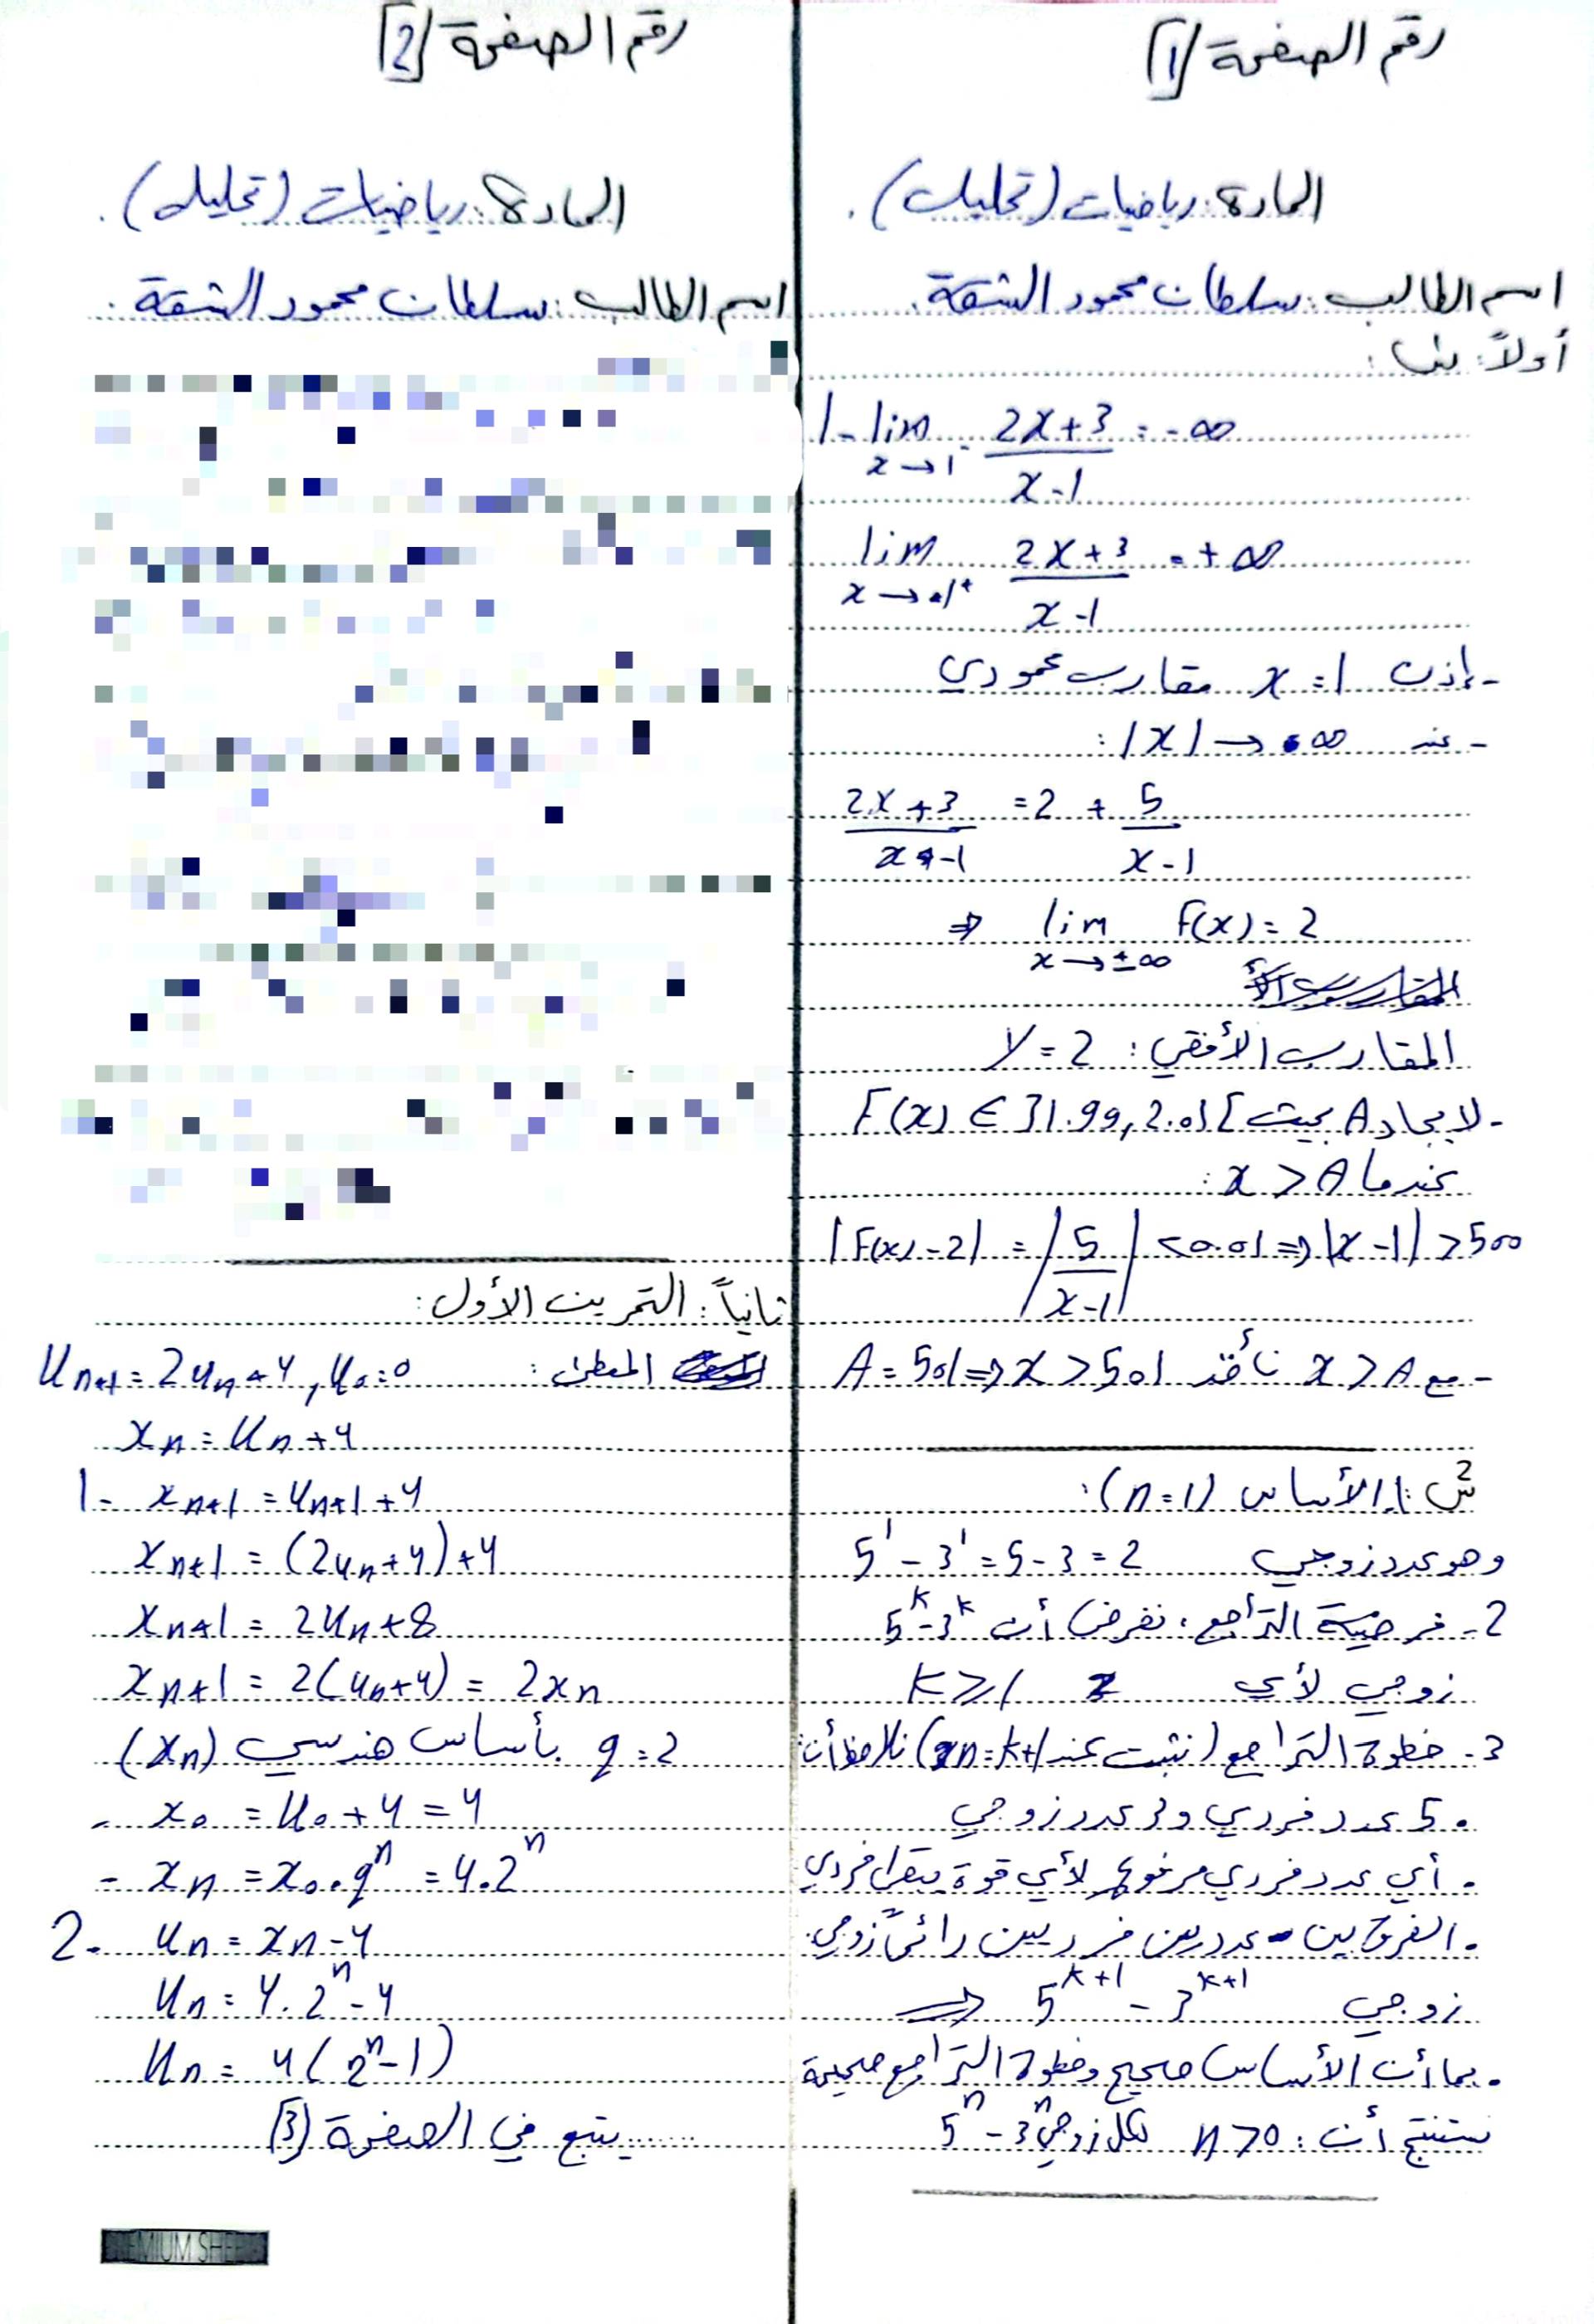 رقم الصفحة [1]
المادة: رياضيات (تحليل).
اسم الطالب: سلطان محمود الشقة.
أولاً:
1- lim x→1⁻ (2x+3)/(x-1) = -∞
lim x→1⁺ (2x+3)/(x-1) = +∞
- إذن x=1 مقارب عمودي
- عند |x|→∞:
(2x+3)/(x-1) = 2 + 5/(x-1)
⇒ lim x→±∞ F(x)=2
المقارب الأفقي: y=2
- لايجاد A بحيث F(x) ∈ ]1.99, 2.01[
عندما x > A:
|F(x)-2| = |5/(x-1)| < 0.01 ⇒ |x-1| > 500
- مع x > A نأخذ A=501 ⇒ x > 501
س2: 1. الأساس (n=1):
5¹ - 3¹ = 5 - 3 = 2 وهو عدد زوجي
2- فرضية التراجع: نفرض أن 5ᵏ-3ᵏ
زوجي لأي k≥1
3- خطوة التراجع (نثبت عند n=k+1) نلاحظ أن:
. 5 عدد فردي و3 عدد زوجي
. أي عدد فردي مرفوع لأي قوة يبقى فردي
. الفرق بين عددين فرديين دائماً زوجي.
زوجي 5ᵏ⁺¹ - 3ᵏ⁺¹ ⇒
. بما أن الأساس صحيح وخطوة التراجع صحيحة
نستنتج أن: n>0 لكل زوجي 5ⁿ - 3ⁿ
رقم الصفحة [2]
المادة: رياضيات (تحليل).
اسم الطالب: سلطان محمود الشقة.
ثانياً: التمرين الأول:
المعطى: Uₙ₊₁ = 2uₙ+4, u₀=0
xₙ = Uₙ+4
1- xₙ₊₁ = uₙ₊₁+4
xₙ₊₁ = (2uₙ+4)+4
xₙ₊₁ = 2uₙ+8
xₙ₊₁ = 2(uₙ+4) = 2xₙ
(xₙ) هندسي بأساس q=2
- x₀ = U₀+4 = 4
- xₙ = x₀.qⁿ = 4.2ⁿ
2- uₙ = xₙ-4
Uₙ = 4.2ⁿ-4
Uₙ = 4(2ⁿ-1)
يتبع في الصفحة [3]